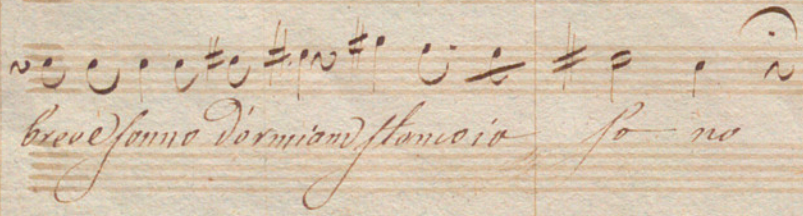 breve sonno dormiam stanco io so no